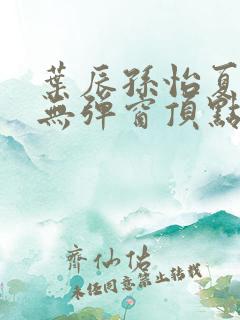 葉辰孫怡夏
無彈窗頂點
齊仙佑
未经同意禁止转载